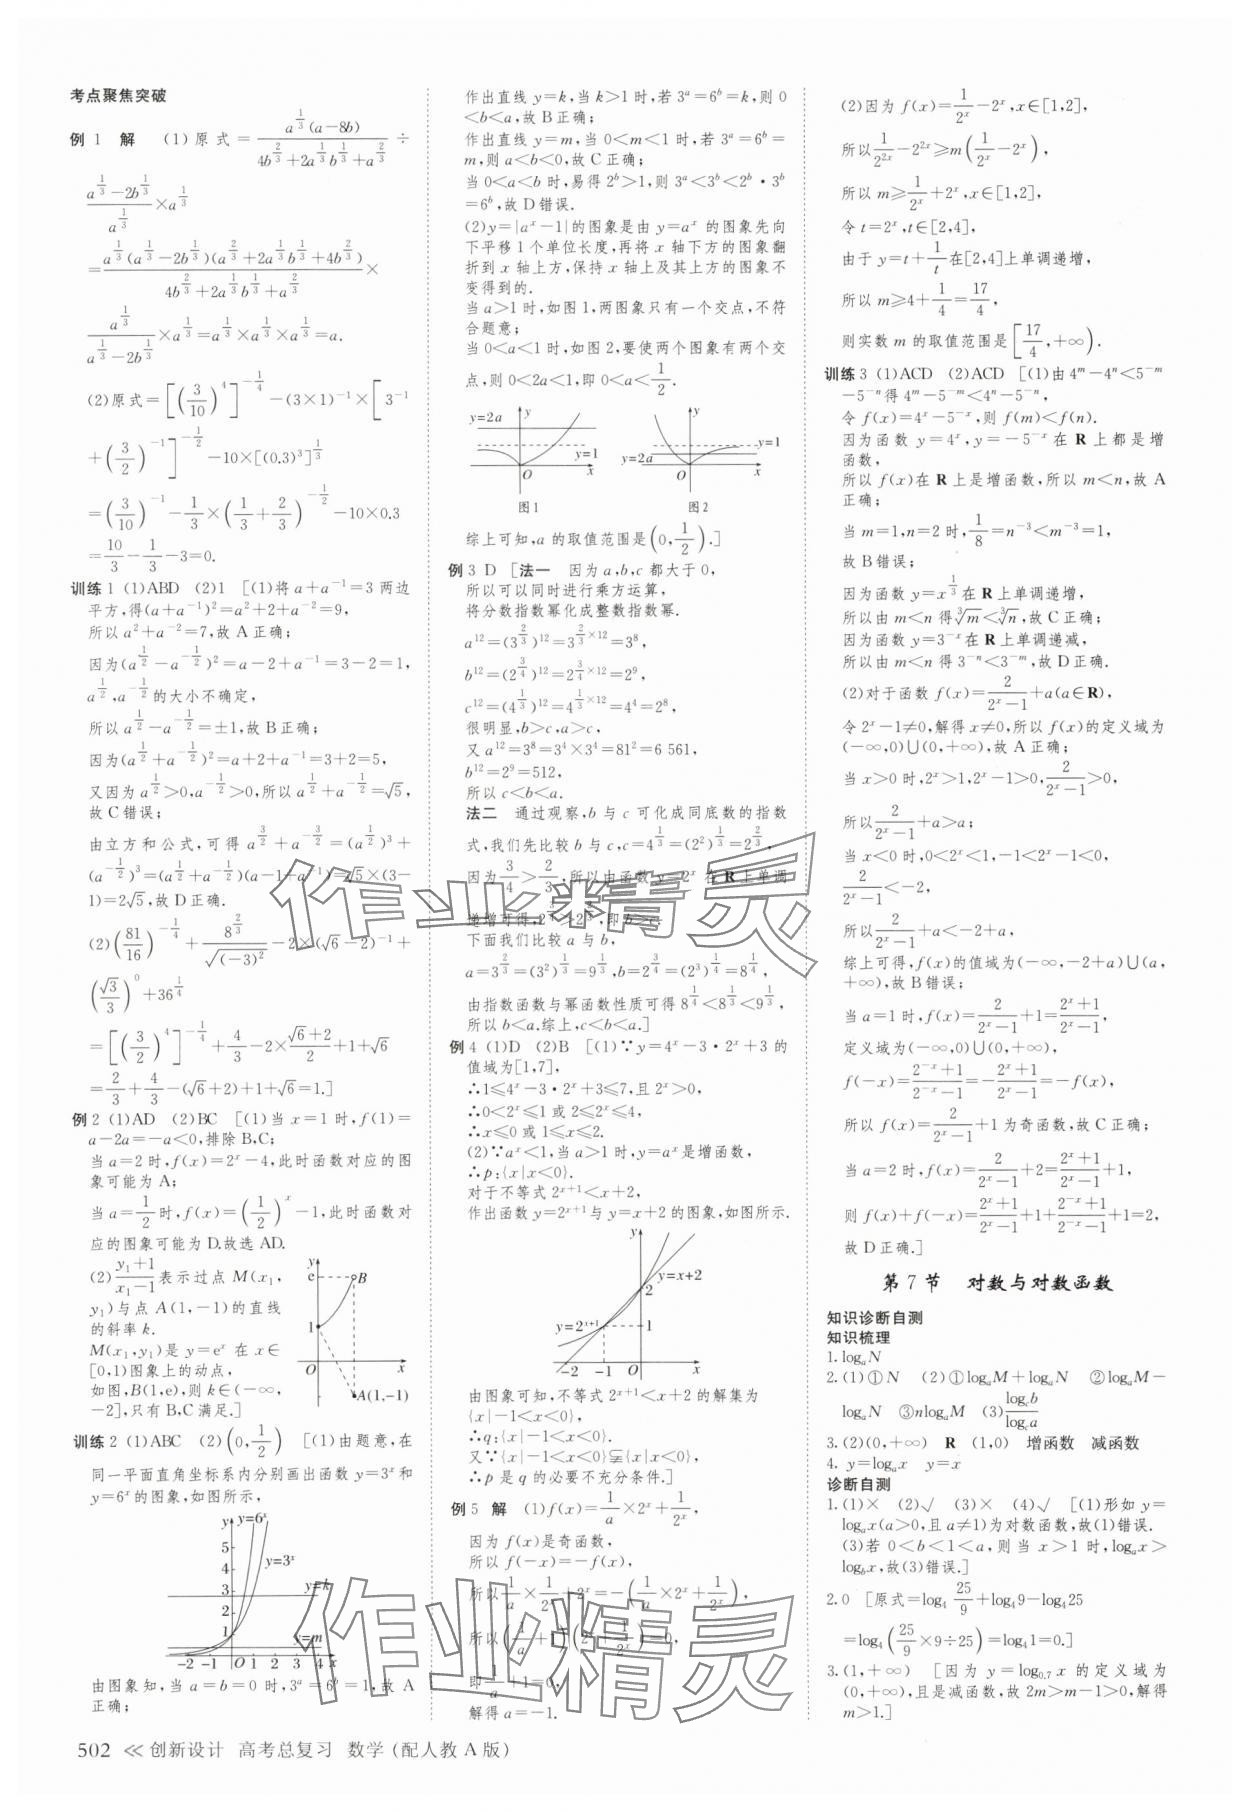 考点聚焦突破
例 1 解 (1)原式=\frac{a^{\frac{1}{3}}(a-8b)}{4b^{\frac{2}{3}}+2a^{\frac{1}{3}}b^{\frac{1}{3}}+a^{\frac{2}{3}}}÷
\frac{a^{\frac{1}{3}}-2b^{\frac{1}{3}}}{a^{\frac{1}{3}}}×a^{\frac{1}{3}}
=\frac{a^{\frac{1}{3}}(a^{\frac{1}{3}}-2b^{\frac{1}{3}})(a^{\frac{2}{3}}+2a^{\frac{1}{3}}b^{\frac{1}{3}}+4b^{\frac{2}{3}})}{4b^{\frac{2}{3}}+2a^{\frac{1}{3}}b^{\frac{1}{3}}+a^{\frac{2}{3}}}×
\frac{a^{\frac{1}{3}}}{a^{\frac{1}{3}}-2b^{\frac{1}{3}}}×a^{\frac{1}{3}}=a^{\frac{1}{3}}×a^{\frac{1}{3}}×a^{\frac{1}{3}}=a.
(2)原式=[(\frac{3}{10})^4]^{-\frac{1}{4}}-(3×1)^{-1}×[3^{-1}
+(\frac{3}{2})^{-1}]^{-\frac{1}{2}}-10×[(0.3)^3]^{\frac{1}{3}}
=(\frac{3}{10})^{-1}-\frac{1}{3}×(\frac{1}{3}+\frac{2}{3})^{-\frac{1}{2}}-10×0.3
=\frac{10}{3}-\frac{1}{3}-3=0.
训练 1 (1)ABD (2)1 [(1)将 a+a^{-1}=3 两边
平方,得(a+a^{-1})^2=a^2+2+a^{-2}=9,
所以 a^2+a^{-2}=7,故 A 正确;
因为(a^{\frac{1}{2}}-a^{-\frac{1}{2}})^2=a-2+a^{-1}=3-2=1,
a^{\frac{1}{2}},a^{-\frac{1}{2}}的大小不确定,
所以 a^{\frac{1}{2}}-a^{-\frac{1}{2}}=±1,故 B 正确;
因为(a^{\frac{1}{2}}+a^{-\frac{1}{2}})^2=a+2+a^{-1}=3+2=5,
又因为 a^{\frac{1}{2}}>0,a^{-\frac{1}{2}}>0,所以 a^{\frac{1}{2}}+a^{-\frac{1}{2}}=√5,
故 C 错误;
由立方和公式,可得 a^{\frac{3}{2}}+a^{-\frac{3}{2}}=(a^{\frac{1}{2}})^3+
(a^{-\frac{1}{2}})^3=(a^{\frac{1}{2}}+a^{-\frac{1}{2}})(a-1+a^{-1})=√5×(3-
1)=2√5,故 D 正确.
(2)(\frac{81}{16})^{-\frac{1}{4}}+\frac{8^{\frac{2}{3}}}{√(-3)^2}-2×(√6-2)^{-1}+
(\frac{√3}{3})^0+36^{\frac{1}{4}}
=[(\frac{3}{2})^4]^{-\frac{1}{4}}+\frac{4}{3}-2×\frac{√6+2}{2}+1+√6
=\frac{2}{3}+\frac{4}{3}-(√6+2)+1+√6=1.]
例 2 (1)AD (2)BC [(1)当 x=1 时,f(1)=
a-2a=-a<0,排除 B,C;
当 a=2 时,f(x)=2^x-4,此时函数对应的图
象可能为 A;
当 a=\frac{1}{2}时,f(x)=(\frac{1}{2})^x-1,此时函数对
应的图象可能为 D.故选 AD.
(2)\frac{y_1+1}{x_1-1}表示过点 M(x_1,
y_1)与点 A(1,-1)的直线
的斜率 k.
M(x_1,y_1)是 y=e^x 在 x∈
[0,1)图象上的动点,
如图,B(1,e),则 k∈(-∞,
-2],只有 B,C 满足.]
y e B 1 O x A(1,-1)
训练 2 (1)ABC (2)(0,\frac{1}{2}) [(1)由题意,在
同一平面直角坐标系内分别画出函数 y=3^x 和
y=6^x 的图象,如图所示,
y y=6^x
5
4 y=3^x
3 y=k
2
1 y=m
-2 -1 O 1 2 3 4 x
由图象知,当 a=b=0 时,3^a=6^b=1,故 A
正确;
作出直线 y=k,当 k>1 时,若 3^a=6^b=k,则 0
<b<a,故 B 正确;
作出直线 y=m,当 0<m<1 时,若 3^a=6^b=
m,则 a<b<0,故 C 正确;
当 0<a<b 时,易得 2^b>1,则 3^a<3^b<2^b·3^b
=6^b,故 D 错误.
(2)y=|a^x-1|的图象是由 y=a^x 的图象先向
下平移 1 个单位长度,再将 x 轴下方的图象翻
折到 x 轴上方,保持 x 轴及其上方的图象不
变得到的.
当 a>1 时,如图 1,两图象只有一个交点,不符
合题意;
当 0<a<1 时,如图 2,要使两个图象有两个交
点,则 0<2a<1,即 0<a<\frac{1}{2}.
y=2a y y=1 O x 图1
y y=1 y=2a O x 图2
综上可知,a 的取值范围是(0,\frac{1}{2}).]
例 3 D [法一 因为 a,b,c 都大于 0,
所以可以同时进行乘方运算,
将分数指数幂化成整数指数幂.
a^{12}=(3^{\frac{2}{3}})^{12}=3^{\frac{2}{3}×12}=3^8,
b^{12}=(2^{\frac{3}{4}})^{12}=2^{\frac{3}{4}×12}=2^9,
c^{12}=(4^{\frac{1}{3}})^{12}=4^{\frac{1}{3}×12}=4^4=2^8,
很明显,b>c,a>c,
又 a^{12}=3^8=3^4×3^4=81^2=6 561,
b^{12}=2^9=512,
所以 c<b<a.
法二 通过观察,b 与 c 可化成同底数的指数
式,我们先比较 b 与 c,c=4^{\frac{1}{3}}=(2^2)^{\frac{1}{3}}=2^{\frac{2}{3}},
因为\frac{3}{4}>\frac{2}{3},所以由函数 y=2^x 在 R 上单调
递增可得,2^{\frac{3}{4}}>2^{\frac{2}{3}},即 b>c.
下面我们比较 a 与 b,
a=3^{\frac{2}{3}}=(3^2)^{\frac{1}{3}}=9^{\frac{1}{3}},b=2^{\frac{3}{4}}=(2^3)^{\frac{1}{4}}=8^{\frac{1}{4}},
由指数函数与幂函数性质可得 8^{\frac{1}{4}}<8^{\frac{1}{3}}<9^{\frac{1}{3}},
所以 b<a.综上,c<b<a.]
例 4 (1)D (2)B [(1)∵y=4^x-3·2^x+3 的
值域为[1,7],
∴1≤4^x-3·2^x+3≤7,且 2^x>0,
∴0<2^x≤1 或 2≤2^x≤4,
∴x≤0 或 1≤x≤2.
(2)∵a^x<1,当 a>1 时,y=a^x 是增函数,
∴p:{x|x<0}.
对于不等式 2^{x+1}<x+2,
作出函数 y=2^{x+1}与 y=x+2 的图象,如图所示.
y y=x+2 2
y=2^{x+1} 1
-2 -1 O x
由图象可知,不等式 2^{x+1}<x+2 的解集为
{x|-1<x<0},
∴q:{x|-1<x<0}.
又∵{x|-1<x<0}⫋{x|x<0},
∴p 是 q 的必要不充分条件.]
例 5 解 (1)f(x)=\frac{1}{a}×2^x+\frac{1}{2^x},
因为 f(x)是奇函数,
所以 f(-x)=-f(x),
所以\frac{1}{a}×\frac{1}{2^x}+2^x=-(\frac{1}{a}×2^x+\frac{1}{2^x}),
所以(\frac{1}{a}+1)(2^x+\frac{1}{2^x})=0,
即\frac{1}{a}+1=0,
解得 a=-1.
(2)因为 f(x)=\frac{1}{2^x}-2^x,x∈[1,2],
所以\frac{1}{2^{2x}}-2^{2x}≥m(\frac{1}{2^x}-2^x),
所以 m≥\frac{1}{2^x}+2^x,x∈[1,2],
令 t=2^x,t∈[2,4],
由于 y=t+\frac{1}{t}在[2,4]上单调递增,
所以 m≥4+\frac{1}{4}=\frac{17}{4},
则实数 m 的取值范围是[\frac{17}{4},+∞).
训练 3 (1)ACD (2)ACD [(1)由 4^m-4^n<5^{-m}
-5^{-n}得 4^m-5^{-m}<4^n-5^{-n},
令 f(x)=4^x-5^{-x},则 f(m)<f(n).
因为函数 y=4^x,y=-5^{-x}在 R 上都是增
函数,
所以 f(x)在 R 上是增函数,所以 m<n,故 A
正确;
当 m=1,n=2 时,\frac{1}{8}=n^{-3}<m^{-3}=1,
故 B 错误;
因为函数 y=x^{\frac{1}{3}}在 R 上单调递增,
所以由 m<n 得∛m<∛n,故 C 正确;
因为函数 y=3^{-x}在 R 上单调递减,
所以由 m<n 得 3^{-n}<3^{-m},故 D 正确.
(2)对于函数 f(x)=\frac{2}{2^x-1}+a(a∈R),
令 2^x-1≠0,解得 x≠0,所以 f(x)的定义域为
(-∞,0)∪(0,+∞),故 A 正确;
当 x>0 时,2^x>1,2^x-1>0,\frac{2}{2^x-1}>0,
所以\frac{2}{2^x-1}+a>a;
当 x<0 时,0<2^x<1,-1<2^x-1<0,
\frac{2}{2^x-1}<-2,
所以\frac{2}{2^x-1}+a<-2+a,
综上可得,f(x)的值域为(-∞,-2+a)∪(a,
+∞),故 B 错误;
当 a=1 时,f(x)=\frac{2}{2^x-1}+1=\frac{2^x+1}{2^x-1},
定义域为(-∞,0)∪(0,+∞),
f(-x)=\frac{2^{-x}+1}{2^{-x}-1}=-\frac{2^x+1}{2^x-1}=-f(x),
所以 f(x)=\frac{2}{2^x-1}+1 为奇函数,故 C 正确;
当 a=2 时,f(x)=\frac{2}{2^x-1}+2=\frac{2^x+1}{2^x-1}+1,
则 f(x)+f(-x)=\frac{2^x+1}{2^x-1}+1+\frac{2^{-x}+1}{2^{-x}-1}+1=2,
故 D 正确.]
第 7 节 对数与对数函数
知识诊断自测
知识梳理
1.log_aN
2.(1)①N (2)①log_aM+log_aN ②log_aM-
log_aN ③nlog_aM (3)\frac{log_cb}{log_ca}
3.(2)(0,+∞) R (1,0) 增函数 减函数
4. y=log_ax y=x
诊断自测
1.(1)× (2)√ (3)× (4)√ [(1)形如 y=
log_ax(a>0,且 a≠1)为对数函数,故(1)错误.
(3)若 0<b<1<a,则当 x>1 时,log_ax>
log_bx,故(3)错误.]
2.0 [原式=log_4\frac{25}{9}+log_49-log_425
=log_4(\frac{25}{9}×9÷25)=log_41=0.]
3.(1,+∞) [因为 y=log_{0.7}x 的定义域为
(0,+∞),且是减函数,故 2m>m-1>0,解得
m>1.]
502 ≪ 创新设计 高考总复习 数学(配人教 A 版)
作业精灵
作业精灵